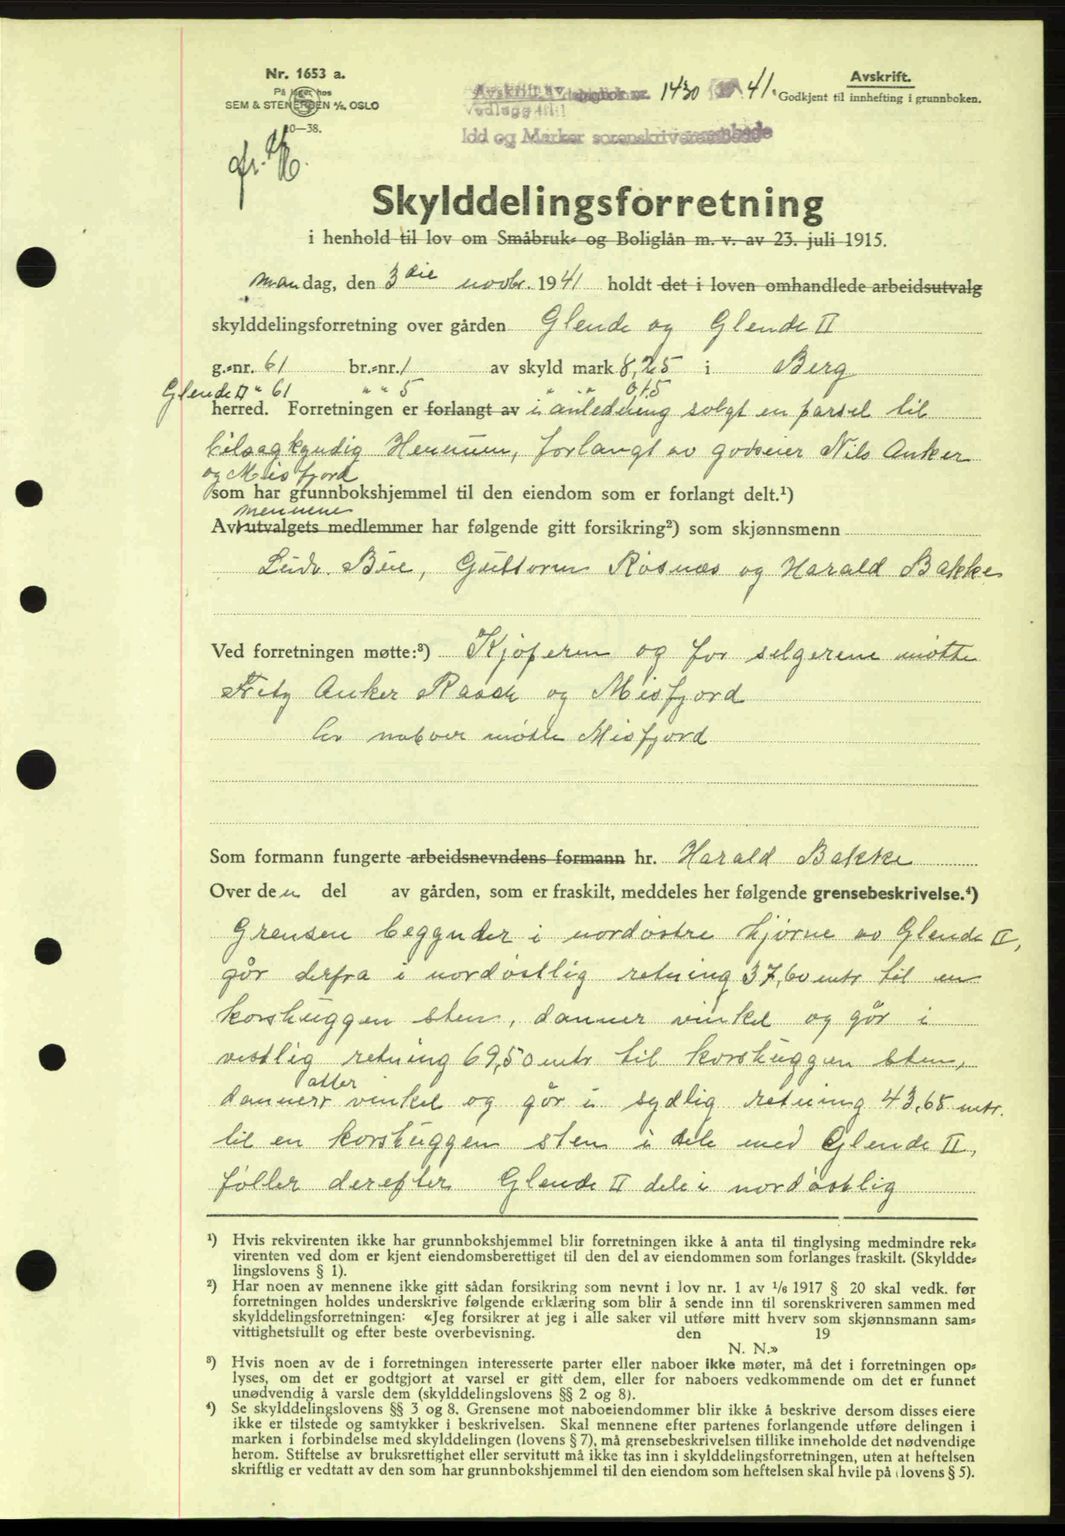 Nr. 1653 a.
På lager hos
SEM & STENERSEN A/S, OSLO
10—38.
Avskrift av dagbok nr. 1430 19 41.
Vedlegg til
Idd og Marker sorenskriverembede
Avskrift.
Godkjent til innhefting i grunnboken.
Skylddelingsforretning
i henhold til lov om Småbruk- og Boliglån m. v. av 23. juli 1915.
mandag, den 3die novbr. 1941 holdt det i loven omhandlede arbeidsutvalg
skylddelingsforretning over gården Glende og Glende II
g.-nr. 61 br.-nr. 1 av skyld mark 8,25 i Berg
Glende II " 61 " " 5 " " 0,15
herred. Forretningen er forlangt av i anledning solgt en parsel til
bilsagkyndig Hennum, forlangt av godseier Nils Anker
og Misfjord
som har grunnbokshjemmel til den eiendom som er forlangt delt.¹)
mennene
Av utvalgets medlemmer har følgende gitt forsikring²) som skjønnsmenn
Ludv. Bue, Guttorm Rosnæs og Harald Bakke
Ved forretningen møtte:³) Kjøperen og for selgerene møtte
Fritz Anker Rasch og Misfjord
Av naboer møtte Misfjord
Som formann fungerte arbeidsnevndens formann hr. Harald Bakke
Over den del av gården, som er fraskilt, meddeles her følgende grensebeskrivelse.⁴)
Grensen begynder i nordøstre hjørne av Glende II,
går derfra i nordøstlig retning 37,60 mtr til en
korshuggen sten, danner vinkel og går i
vestlig retning 69,50 mtr til korshuggen sten,
danner atter vinkel og går i sydlig retning 43,68 mtr.
til en korshuggen sten i dele med Glende II,
føller derefter Glende II dele i nordøstlig
¹) Hvis rekvirenten ikke har grunnbokshjemmel blir forretningen ikke å anta til tinglysing medmindre rek-
virenten ved dom er kjent eiendomsberettiget til den del av eiendommen som forlanges fraskilt. (Skyldde-
lingslovens § 1).
²) Har noen av mennene ikke gitt sådan forsikring som nevnt i lov nr. 1 av 1/6 1917 § 20 skal vedk. før
forretningen holdes underskrive følgende erklæring som blir å sende inn til sorenskriveren sammen med
skylddelingsforretningen: «Jeg forsikrer at jeg i alle saker vil utføre mitt hverv som skjønnsmann sam-
vittighetsfullt og efter beste overbevisning. den 19
N. N.»
³) Hvis noen av de i forretningen interesserte parter eller naboer ikke møter, må det i forretningen op-
lyses, om det er godtgjort at varsel er gitt dem, eller for naboers vedkommende om det er funnet
unødvendig å varsle dem (skylddelingslovens §§ 2 og 8).
⁴) Se skylddelingslovens §§ 3 og 8. Grensene mot naboeiendommer blir ikke å beskrive dersom disses eiere
ikke er tilstede og samtykker i beskrivelsen. Skal mennene efter partenes forlangende utføre delingen i
marken i forbindelse med skylddelingen (lovens § 7), må grensebeskrivelsen tillike inneholde det nødvendige
herom. Stiftelse av bruksrettighet eller servitutt må ikke tas inn i skylddelingsforretningen, uten at heftelsen
skriftlig er vedtatt av den som har grunnbokshjemmel til den eiendom som heftelsen skal hvile på (lovens § 5).